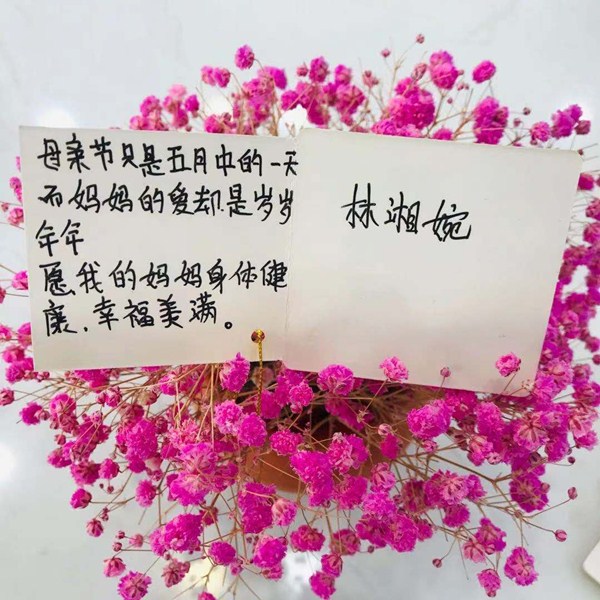 母亲节只是五月中的一天
而妈妈的爱却是岁岁
年年
愿我的妈妈身体健
康、幸福美满。
林湘婉